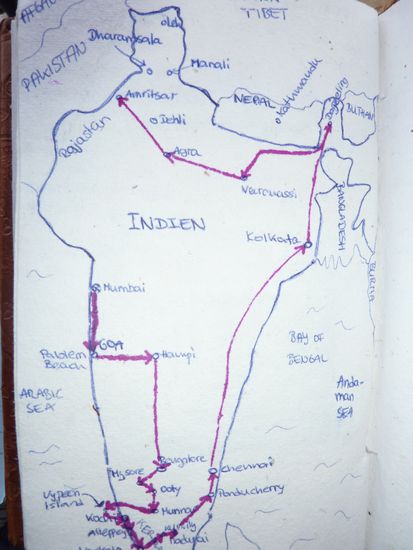 TIBET
AFGAN
PAKISTAN
Dharamsala
Manali
Amritsar
Dehli
Rajastan
Agra
NEPAL
Kathmandu
BUTAAN
Varanassi
INDIEN
Kolkata
BANGLADESH
BURMA
Mumbai
GOA
Palolem
Beach
Hampi
BAY OF
BENGAL
ARABIC
SEA
Anda-
man
SEA
Bangalore
Mysore
Chennai
Ooty
Vypeen
Island
Munnar
Ponducherry
Kochi
Alleppey
Kumily
Madurai